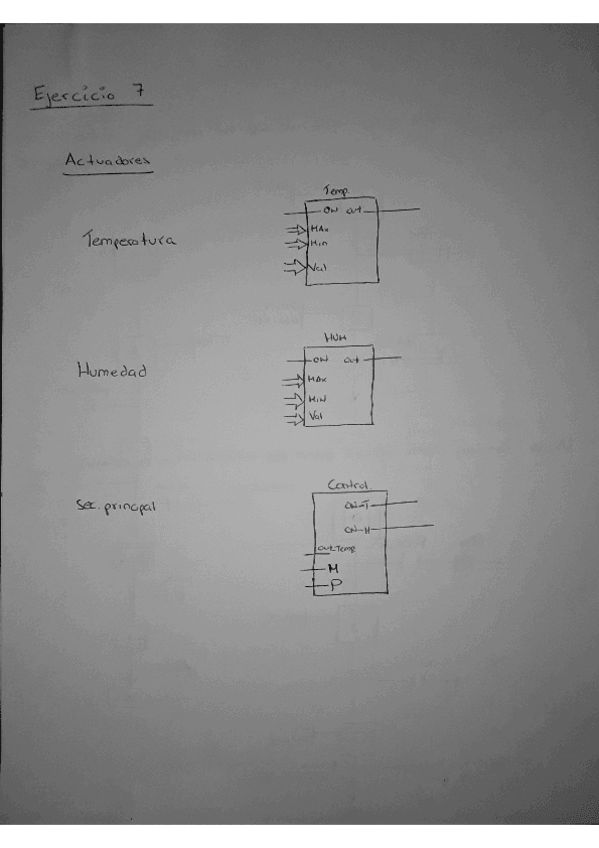 Ejercicio 7
Actuadores
Temp
ON out
Temperatura
MAx
Min
Val
HUM
ON out
Humedad
MAx
MIN
Val
Control
Sec. principal
ON-T
ON-H
OUTTemp
M
P